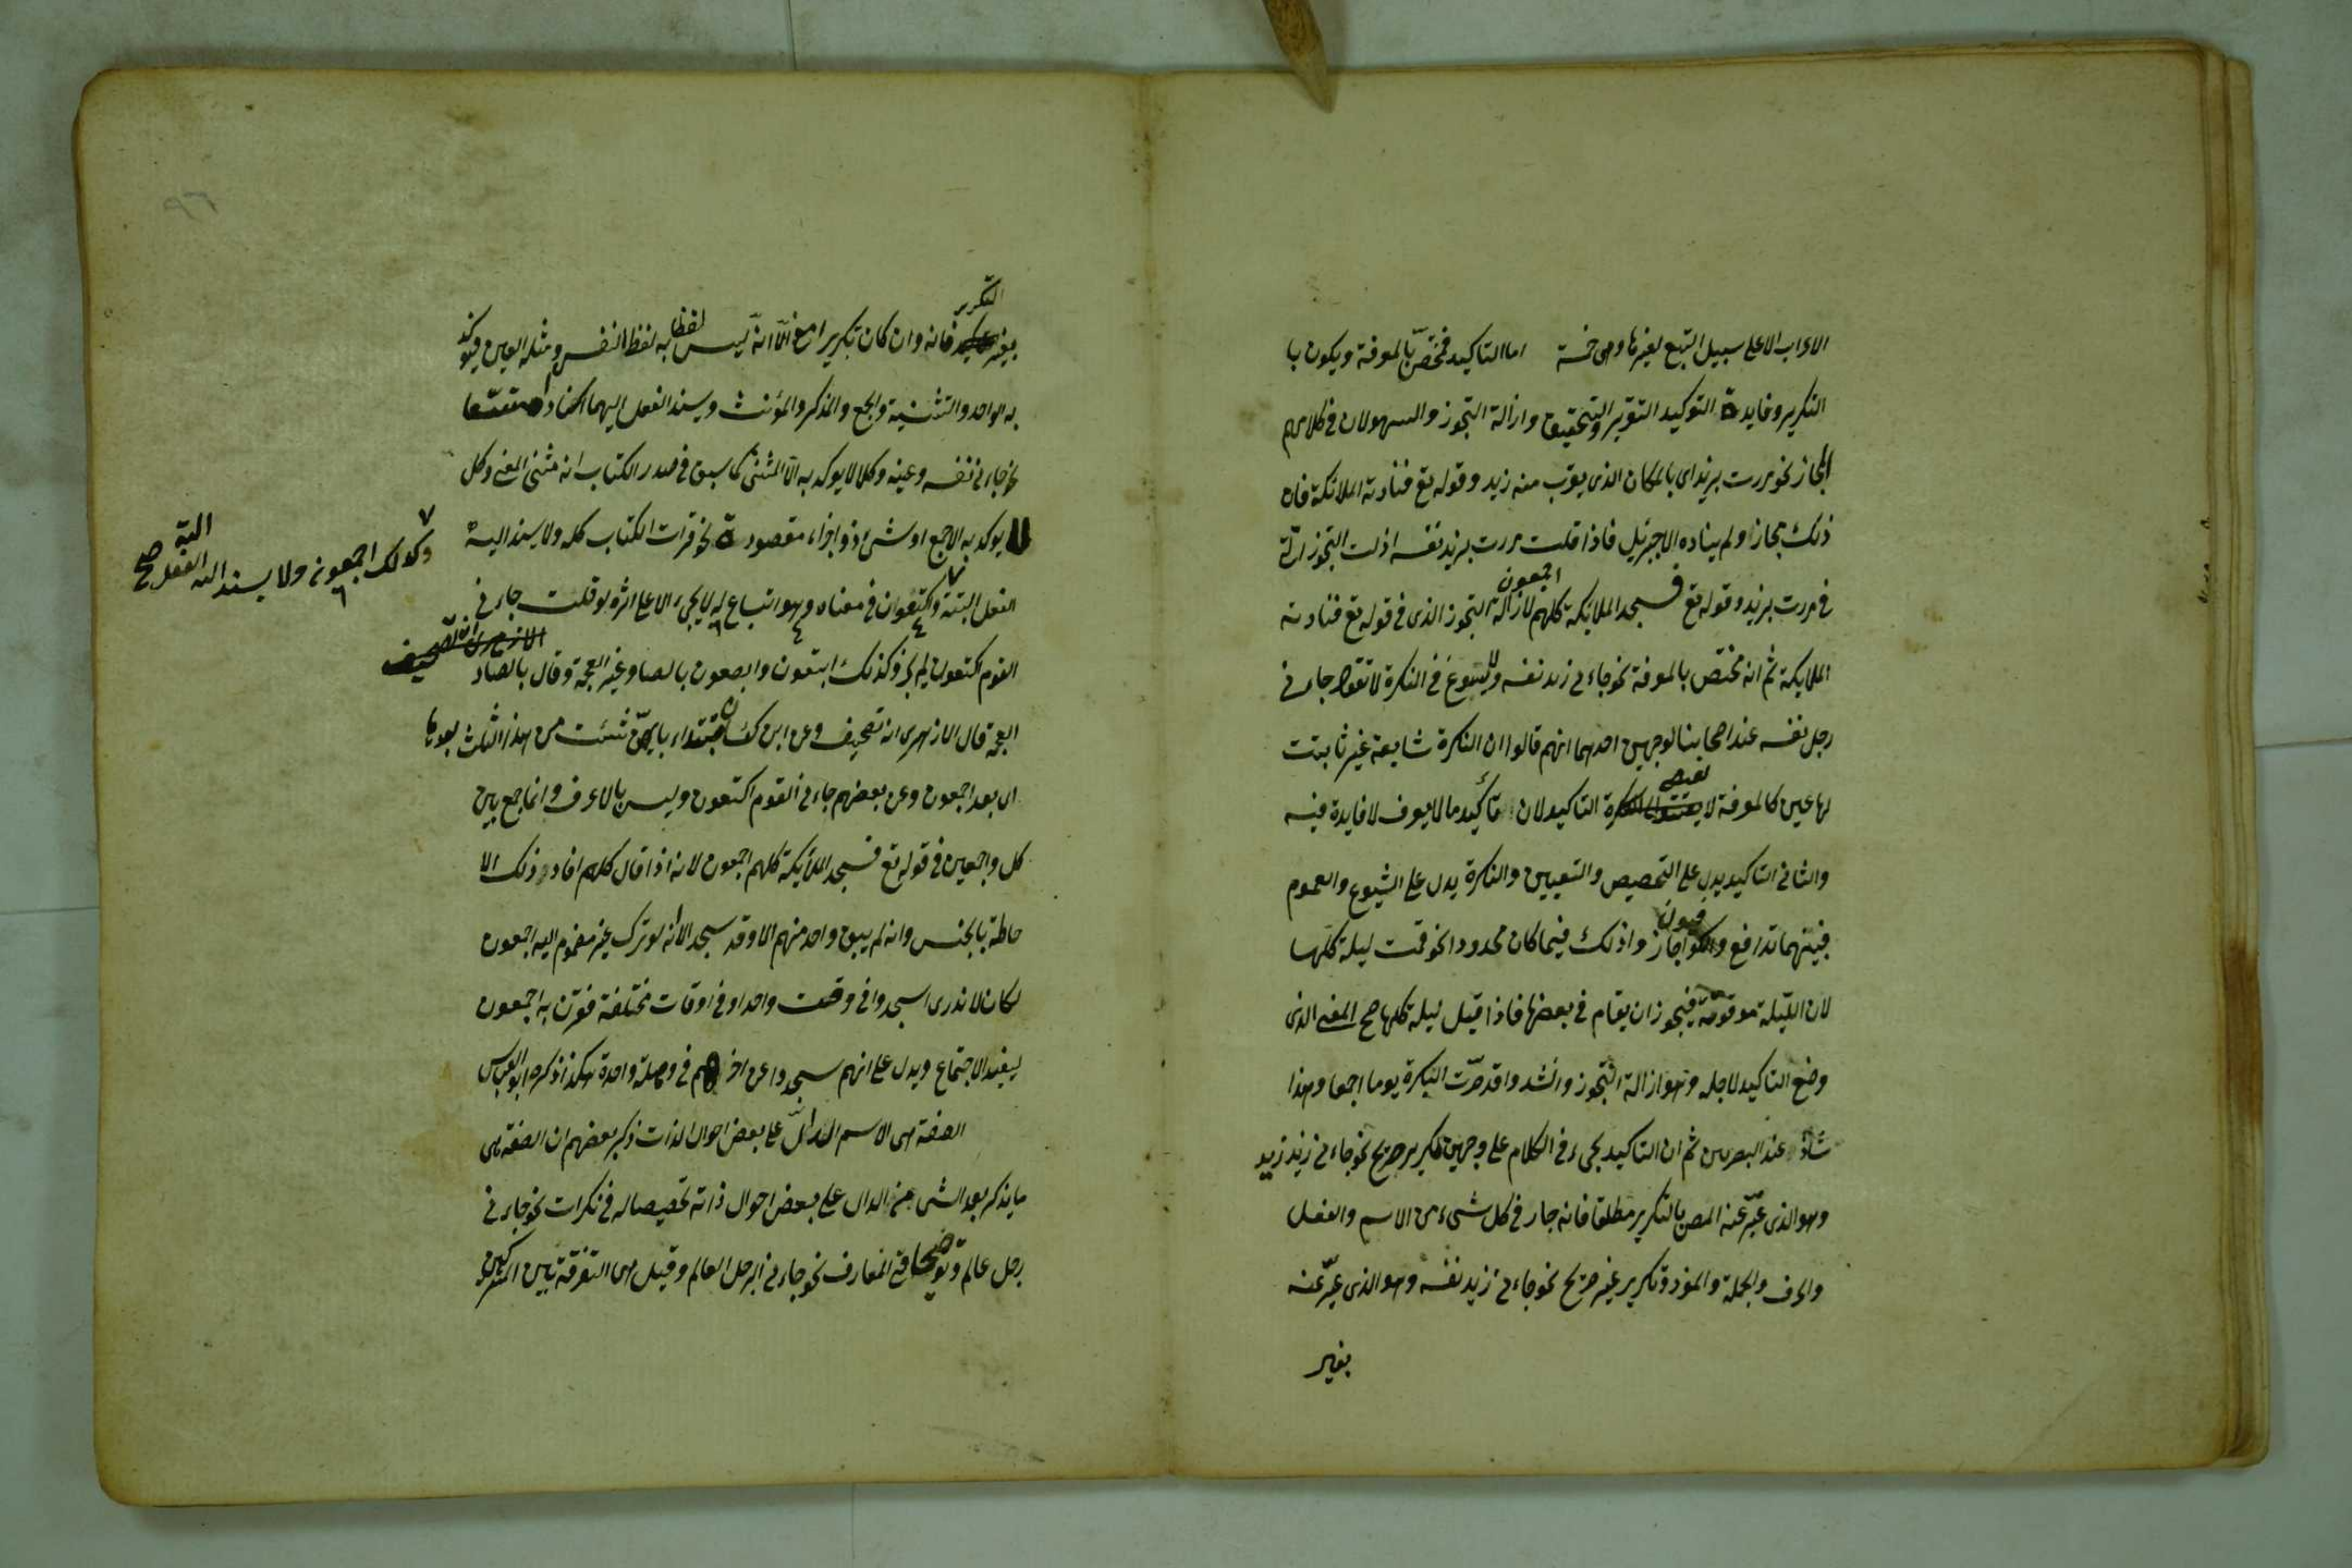 الاعراب الا على سبيل التبع لغيرها وهى خمسة اما التاكيد فمختصّ بالمعرفة ويكون با
التكرير وفايدة التوكيد التقرير والتحقيق وازالة التجوز والسهو لان فى كلامهم
المجاز نحو مررت بزيد اى بالمكان الذى يقرب منه زيد وقوله تع فنادته الملائكة فان
ذلك مجاز او لم يناده الا جبرئيل فاذا قلت مررت بزيد نفسه ازلت التجوز
فى مررت بزيد وقوله تع فسجد الملائكة كلهم اجمعون لازالة التجوز الذى فى قوله تع فنادته
الملايكة ثم انه مختص بالمعرفة نحو جاءنى زيد نفسه ولا يسوغ فى النكرة لا تقول جاءنى
رجل نفسه عند اصحابنا لوجهين احدهما انهم قالوا ان النكرة شايعة غير ثابتت
لها عين كالمعرفة لا التاكيد لان تأكيد ما لا يعرف لا فايدة فيه
والثانى التاكيد يدل على التخصيص والتعيين والنكرة يدل على الشيوع والعموم
فبينهما تدافع والكوفيون اجازوا ذلك فيما كان محدودا نحو قمت ليلة كلها
لان الليلة موقوتة فيجوز ان يقام فى بعضها فاذا قيل ليلة كلها صح المعنى الذى
وضع التاكيد لاجله وهو ازالة التجوز وانشدوا قد صرّت البكرة يوما اجمعا وهذا
شاذ عند البصريين ثم ان التاكيد يجىء فى الكلام على وجهين تكرير صريح نحو جاءنى زيد زيد
وهو الذى عبّر عنه المصن بالتكرير مطلقا فانه جار فى كل شىء من الاسم والفعل
والحرف والجملة والمفرد وتكرير غير صريح نحو جاءنى زيد نفسه وهو الذى عبّر عنه
بغير
بغير التكرير فانه وان كان تكريرا مع الا انه ليس لفظا به لفظ النفس ومثله العين فيؤكد
به الواحد والتثنية والجمع والمذكر والمؤنث ويسند الفعل اليهما
نحو جاءنى نفسه وعينه وكلا لا يوكد به الا المثنى كما سبق فى صدر الكتاب انه مثنى المعنى وكل
لا يوكد به الا جمع او شىء ذو اجزاء مقصودة نحو قرات الكتاب كله ولا يسند اليه
الفعل البتة واكتعون فى معناه وهو اتباع له لا يجىء الا على اثره لو قلت جاءنى
القوم اكتعون لم يجز وكذلك ابتعون وابصعون بالصاد غير المعجمة وقال بالضاد
المعجمة قال الازهرى انه تصحيف وعن ابن كيسان تبتداء بايهن شئت من هذا الثلث بعدها
اى بعد اجمعون وعن بعضهم جاءنى القوم اكتعون وليس بالاعرف وانما جمع بين
كل واجمعين فى قوله تع فسجد الملائكة كلهم اجمعون لانه اذا قال كلهم افاد ذلك الا
حاطة بالجنس وانه لم يبق واحد منهم الا وقد سجد الا انه لو ترك غير مضموم اليه اجمعون
لكان لا ندرى اسجدوا فى وقت واحد او فى اوقات مختلفة فقرن به اجمعون
ليفيد الاجتماع ويدل على انهم سجدوا عن اخرهم فى وصلة واحدة هكذا ذكره ابو العباس
الصفة هى الاسم الدالّ على بعض احوال الذات ذكر بعضهم ان الصفة هى
ما يذكر بعد الشىء من الدال على بعض احوال ذاته تخصيصا له فى نكرات نحو جاءنى
رجل عالم وتوضيحا فى المعارف نحو جاءنى الرجل العالم وقيل هى التفرقة بين المشتركين
وكذلك اجمعون ولا يسند اليه الفعل البتة صح